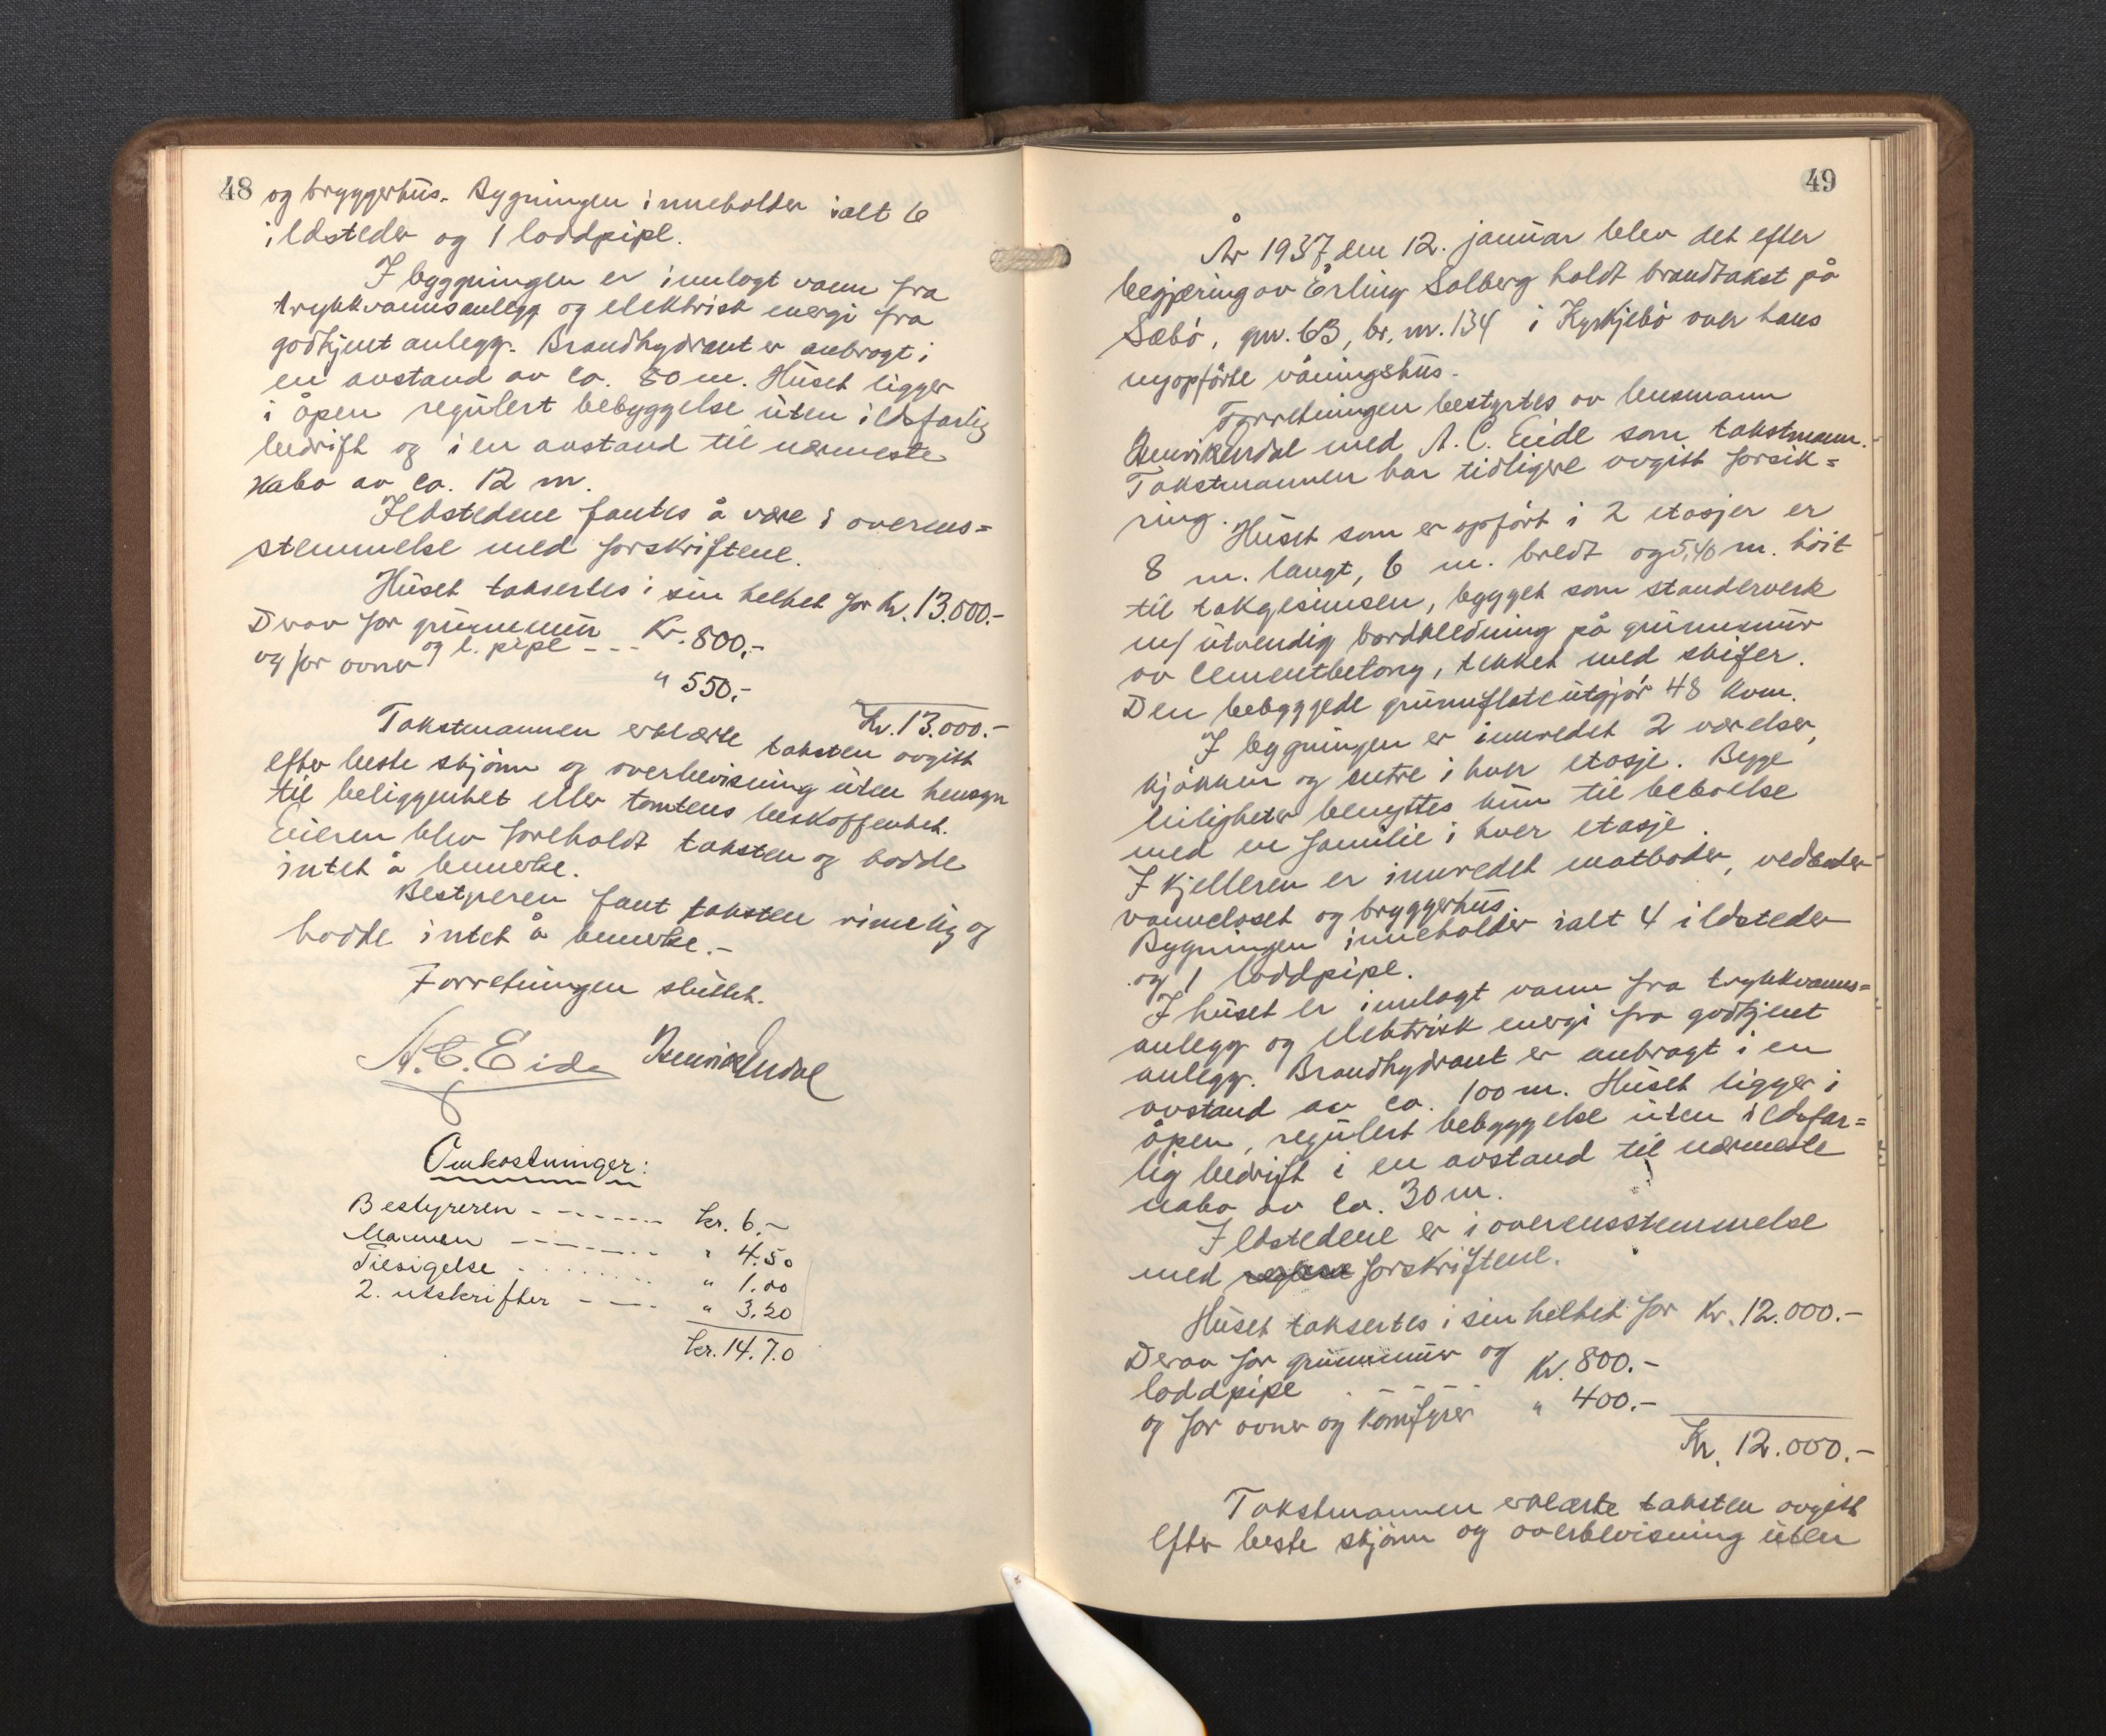 48
og bryggerhus. Bygningen inneholder ialt 6
ildsteder og 1 loddpipe.
I byggningen er innlagt vann fra
trykkvannsanlegg og elektrisk energi fra
godkjent anlegg. Brandhydrant er anbragt i
en avstand av ca. 80 m. Huset ligger
i åpen regulert bebyggelse uten ildsfarlig
bedrift og i en avstand til nærmeste
nabo av ca. 12 m.
Ildstedene fantes å være i overens=
stemmelse med forskriftene.
Huset taksertes i sin helhet for kr. 13.000.-
Derav for grunnmur
og l. pipe - - - Kr. 800,-
og for ovner " 550.-
Kr. 13.000.-
Takstmannen erklærte taksten avgitt
efter beste skjönn og overbevisning uten hensyn
til beliggenhet eller tomtens beskaffenhet.
Eieren blev foreholdt taksten og hadde
intet å bemerke.
Bestyreren fant taksten rimelig og
hadde intet å bemerke.-
Forretningen sluttet.
A. C. Eide
Omkostninger:
Bestyreren - - - - - - - kr. 6.-
Mannen - - - - - - - " 4.50
Tilsigelse . . . . . . . . " 1.00
2. utskrifter - - - - " 3.20
kr. 14.70
49
År 1937 den 12. januar blev det efter
begjæring av Erling Solberg holdt brandtakst på
Sæbö, gnr. 63, br. nr. 134 i Kyrkjebö over hans
nyopförte våningshus.
Forretningen bestyrtes av lensmann
med A. C. Eide som takstmann.
Takstmannen har tidligere avgitt forsik=
ring.
Huset som er opfört i 2 etasjer er
8 m. langt, 6 m. bredt og 5,40 m. höit
til takgesimsen, bygget som standerverk
m/ utvendig bordkledning på grunnmur
av cementbetong, tekket med skifer.
Den bebyggede grunnflate utgjör 48 kvm.
I bygningen er innredet 2 værelser,
kjökken og entre i hver etasje. Begge
leiligheter benyttes kun til beboelse
med en familie i hver etasje.
I kjelleren er innredet matboder, vedboder
vanncloset og bryggerhus.
Bygningen inneholder ialt 4 ildsteder
og 1 loddpipe.
I huset er innlagt vann fra trykkvanns=
anlegg og elektrisk energi fra godkjent
anlegg. Brandhydrant er anbragt i en
avstand av ca. 100 m. Huset ligger i
åpen, regulert bebyggelse uten ildsfar=
lig bedrift i en avstand til nærmeste
nabo av ca. 30 m.
Ildstedene er i overensstemmelse
med forskriftene.
Huset taksertes i sin helhet for Kr. 12.000.-
Derav for grunnmur og
loddpipe . - - - Kr. 800.-
og for ovner og komfyrer " 400.-
Kr. 12.000.-
Takstmannen erklærte taksten avgitt
efter beste skjönn og overbevisning uten